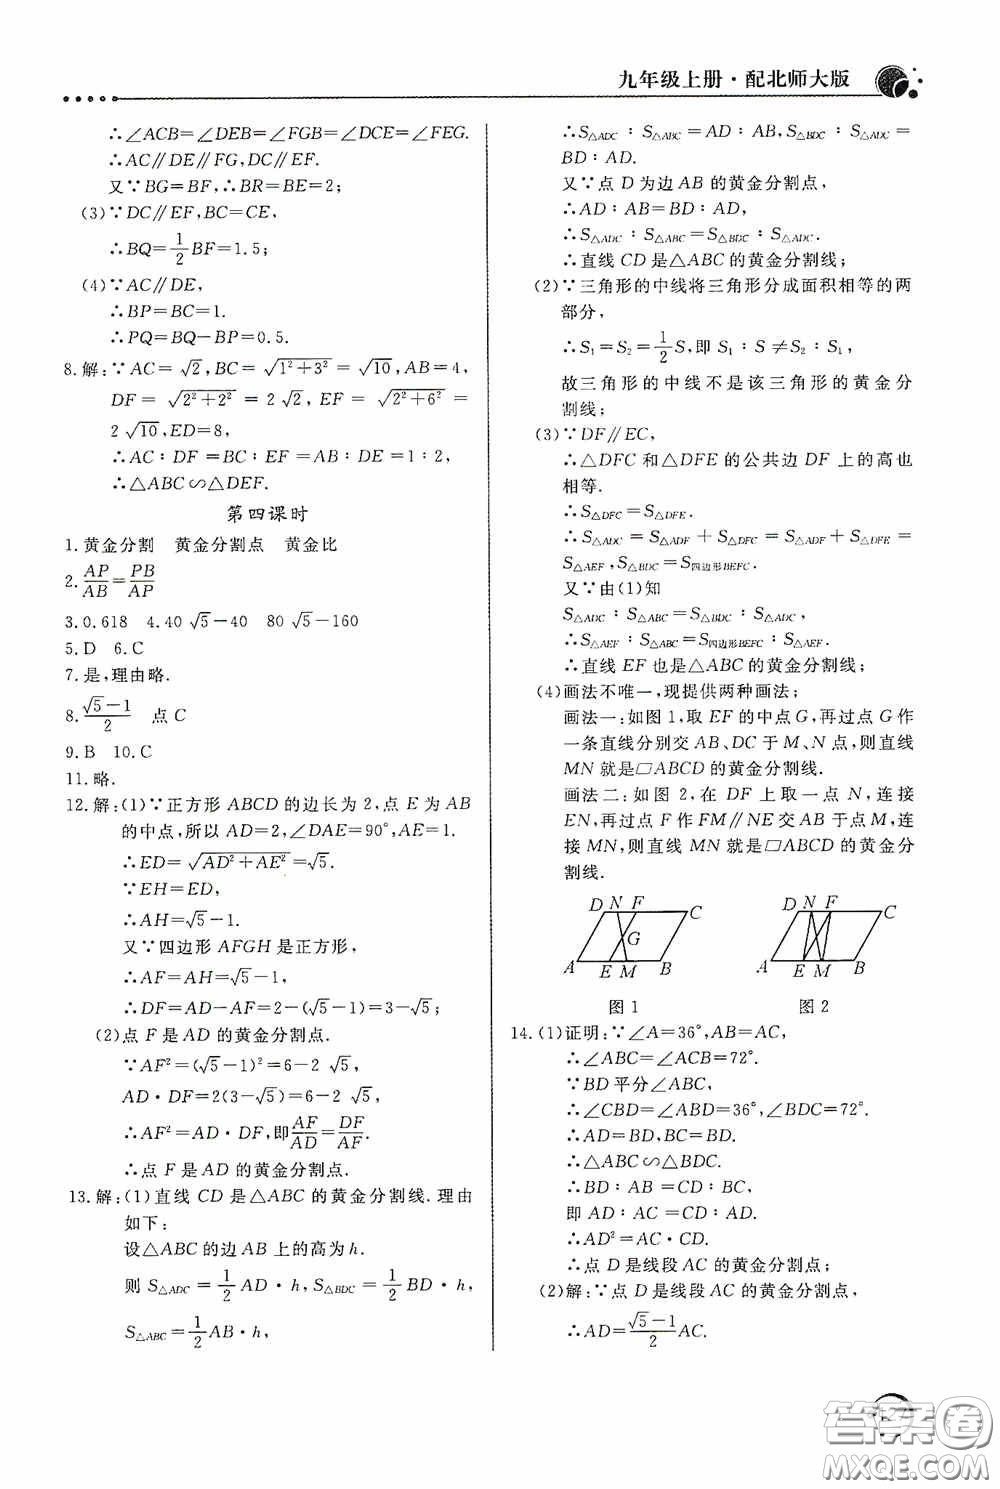 九年级上册·配北师大版
∴∠ACB=∠DEB=∠FGB=∠DCE=∠FEG.
∴AC∥DE∥FG,DC∥EF.
又∵BG=BF,∴BR=BE=2;
(3)∵DC∥EF,BC=CE,
∴BQ=1/2BF=1.5;
(4)∵AC∥DE,
∴BP=BC=1.
∴PQ=BQ-BP=0.5.
8.解:∵AC=√2,BC=√(1²+3²)=√10,AB=4,
DF=√(2²+2²)=2√2,EF=√(2²+6²)=
2√10,ED=8,
∴AC∶DF=BC∶EF=AB∶DE=1∶2,
∴△ABC∽△DEF.
第四课时
1.黄金分割 黄金分割点 黄金比
2.AP/AB=PB/AP
3.0.618 4.40√5-40 80√5-160
5.D 6.C
7.是,理由略.
8.(√5-1)/2 点C
9.B 10.C
11.略.
12.解:(1)∵正方形ABCD的边长为2,点E为AB
的中点,所以AD=2,∠DAE=90°,AE=1.
∴ED=√(AD²+AE²)=√5.
∵EH=ED,
∴AH=√5-1.
又∵四边形AFGH是正方形,
∴AF=AH=√5-1,
∴DF=AD-AF=2-(√5-1)=3-√5;
(2)点F是AD的黄金分割点.
∵AF²=(√5-1)²=6-2√5,
AD·DF=2(3-√5)=6-2√5,
∴AF²=AD·DF,即AF/AD=DF/AF.
∴点F是AD的黄金分割点.
13.解:(1)直线CD是△ABC的黄金分割线.理由
如下:
设△ABC的边AB上的高为h.
则S△ADC=1/2AD·h,S△BDC=1/2BD·h,
S△ABC=1/2AB·h,
∴S△ADC∶S△ABC=AD∶AB,S△BDC∶S△ADC=
BD∶AD.
又∵点D为边AB的黄金分割点,
∴AD∶AB=BD∶AD,
∴S△ADC∶S△ABC=S△BDC∶S△ADC.
∴直线CD是△ABC的黄金分割线;
(2)∵三角形的中线将三角形分成面积相等的两
部分,
∴S₁=S₂=1/2S,即S₁∶S≠S₂∶S₁,
故三角形的中线不是该三角形的黄金分
割线;
(3)∵DF∥EC,
∴△DFC和△DFE的公共边DF上的高也
相等.
∴S△DFC=S△DFE.
∴S△ADC=S△ADF+S△DFC=S△ADF+S△DFE=
S△AEF,S△BDC=S四边形BEFC.
又∵由(1)知
S△ADC∶S△ABC=S△BDC∶S△ADC,
∴S△AEF∶S△ABC=S四边形BEFC∶S△AEF.
∴直线EF也是△ABC的黄金分割线;
(4)画法不唯一,现提供两种画法;
画法一:如图1,取EF的中点G,再过点G作
一条直线分别交AB、DC于M、N点,则直线
MN就是▱ABCD的黄金分割线.
画法二:如图2,在DF上取一点N,连接
EN,再过点F作FM∥NE交AB于点M,连
接MN,则直线MN就是▱ABCD的黄金分
割线.
D N F C
G
A E M B
图1
D N F C
A E M B
图2
14.(1)证明:∵∠A=36°,AB=AC,
∴∠ABC=∠ACB=72°.
∵BD平分∠ABC,
∴∠CBD=∠ABD=36°,∠BDC=72°.
∴AD=BD,BC=BD.
∴△ABC∽△BDC.
∴BD∶AB=CD∶BC,
即AD∶AC=CD∶AD.
∴AD²=AC·CD.
∴点D是线段AC的黄金分割点;
(2)解:∵点D是线段AC的黄金分割点,
∴AD=(√5-1)/2AC.
答案卷
MXQE.COM